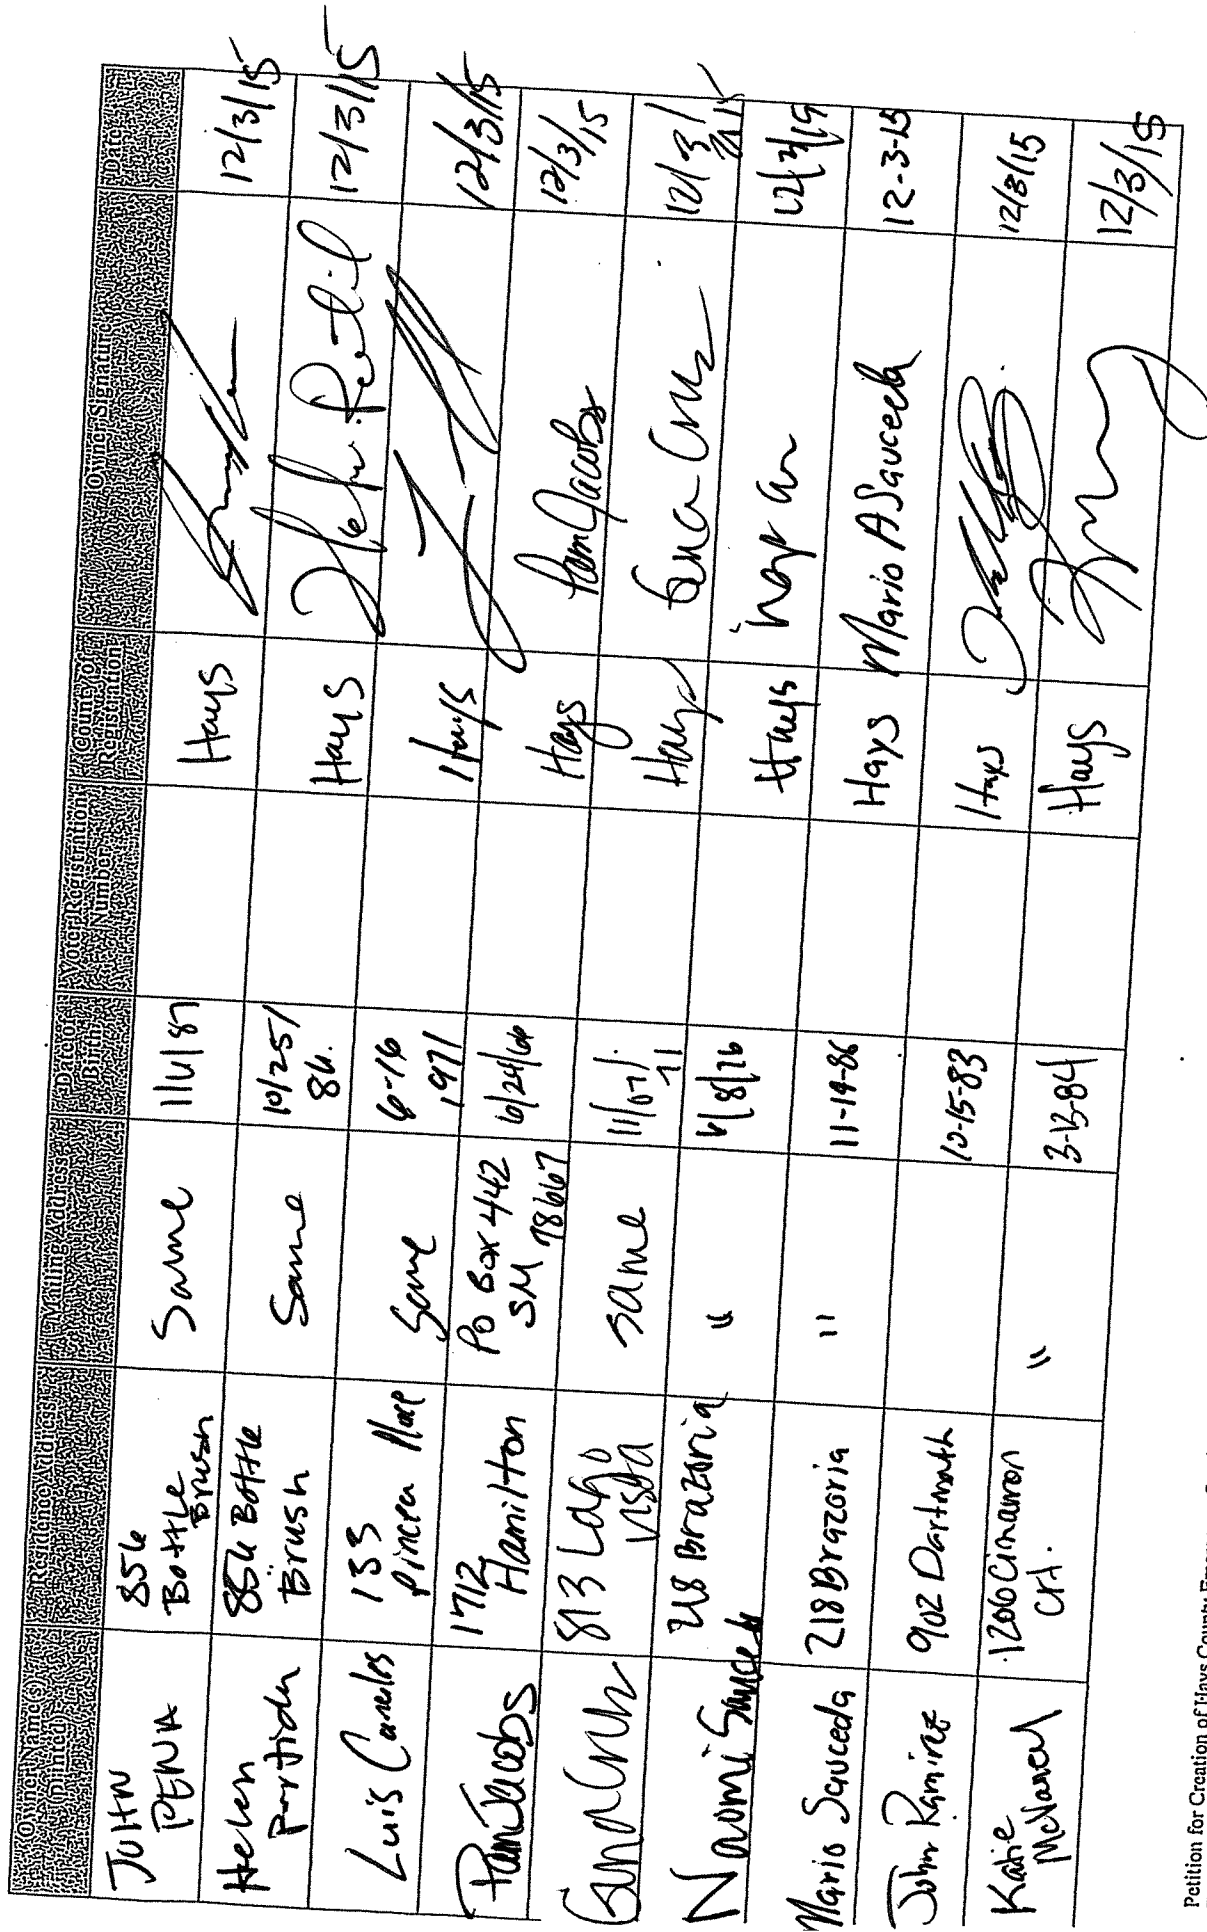 Owner Name(s) (Printed) Residence Address Mailing Address Date of Birth Voter Registration Number County of Registration Owner Signature Date
JOHN PENA 856 Bottle Brush Same Hays 12/3/15
Helen Partida 856 Bottle Brush Same 10/25/ 84. Hays 12/3/15
Luis 133 Place Same 6-16 1971 Hays 12/3/15
Pam Jacobs 1712 Hamilton PO Box 442 SM 78667 6/24/66 Hays Pam Jacobs 12/3/15
Cruz 813 Lago Vista same 11/07/ 71 Hays Cruz 12/3/15
Naomi Sauceda 218 Brazoria " Hays
Mario Sauceda 218 Brazoria " 11-19-86 Hays Mario A Sauceda 12-3-15
John Ramirez 902 Dartmouth 10-15-83 Hays 12/3/15
Katie 1206 Cinnamon Crt. " 3-13-84 Hays 12/3/15
Petition for Creation of Hays County